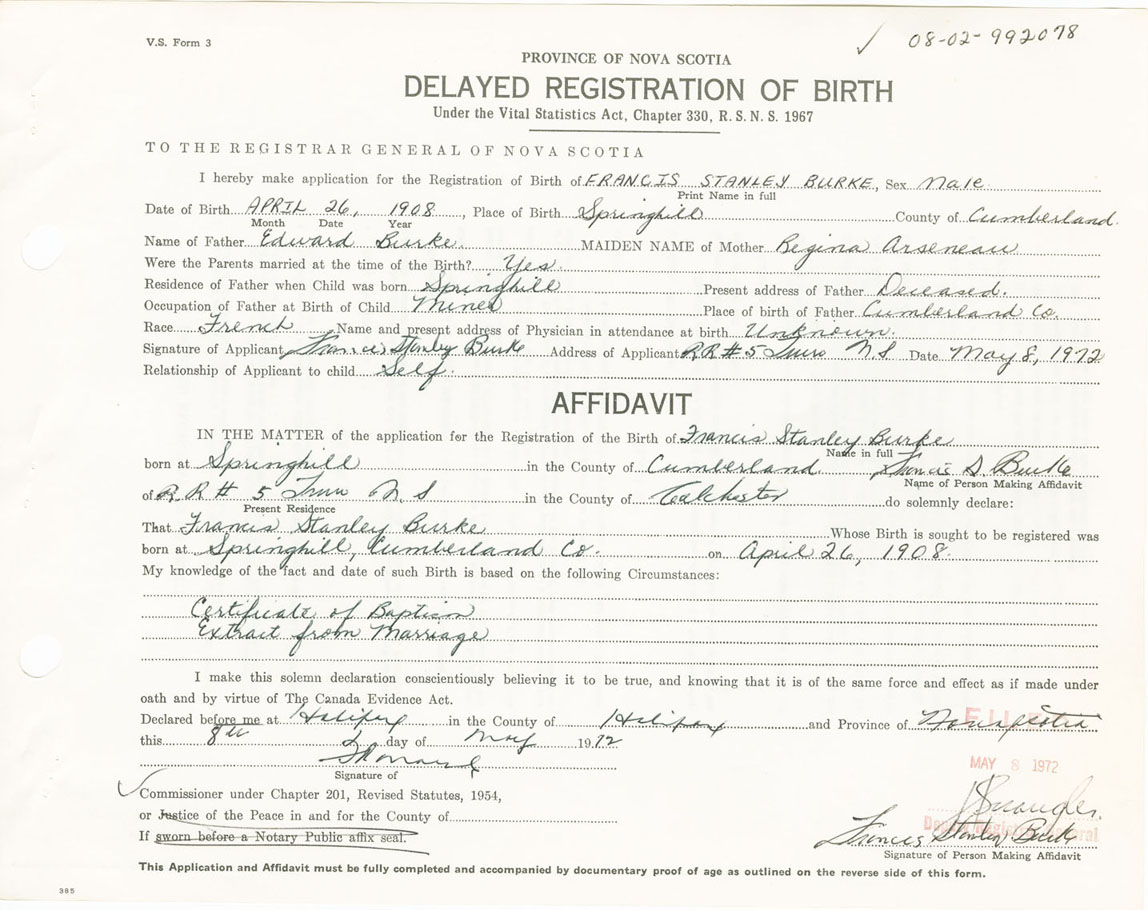 V.S. Form 3
✓ 08-02-992078
PROVINCE OF NOVA SCOTIA
DELAYED REGISTRATION OF BIRTH
Under the Vital Statistics Act, Chapter 330, R.S.N.S. 1967
TO THE REGISTRAR GENERAL OF NOVA SCOTIA
I hereby make application for the Registration of Birth of FRANCIS STANLEY BURKE, Sex Male
Print Name in full
Date of Birth APRIL 26, 1908, Place of Birth Springhill County of Cumberland
Month Date Year
Name of Father Edward Burke MAIDEN NAME of Mother Regina Arseneau
Were the Parents married at the time of the Birth? Yes
Residence of Father when Child was born Springhill Present address of Father Deceased.
Occupation of Father at Birth of Child Miner Place of birth of Father Cumberland Co.
Race French Name and present address of Physician in attendance at birth Unknown.
Signature of Applicant Francis Stanley Burke Address of Applicant RR #5 Truro NS Date May 8, 1972
Relationship of Applicant to child Self.
AFFIDAVIT
IN THE MATTER of the application for the Registration of the Birth of Francis Stanley Burke
Name in full
born at Springhill in the County of Cumberland Francis S. Burke
Name of Person Making Affidavit
of R.R # 5 Truro N S in the County of Colchester do solemnly declare:
Present Residence
That Francis Stanley Burke Whose Birth is sought to be registered was
born at Springhill, Cumberland Co. on April 26, 1908.
My knowledge of the fact and date of such Birth is based on the following Circumstances:
Certificate of Baptism
Extract from Marriage
I make this solemn declaration conscientiously believing it to be true, and knowing that it is of the same force and effect as if made under
oath and by virtue of The Canada Evidence Act.
Declared before me at Halifax in the County of Halifax and Province of Nova Scotia
this 8th day of May 1972
Signature of
MAY 8 1972
✓ Commissioner under Chapter 201, Revised Statutes, 1954,
or Justice of the Peace in and for the County of
If sworn before a Notary Public affix seal.
Francis Stanley Burke
Signature of Person Making Affidavit
This Application and Affidavit must be fully completed and accompanied by documentary proof of age as outlined on the reverse side of this form.
385